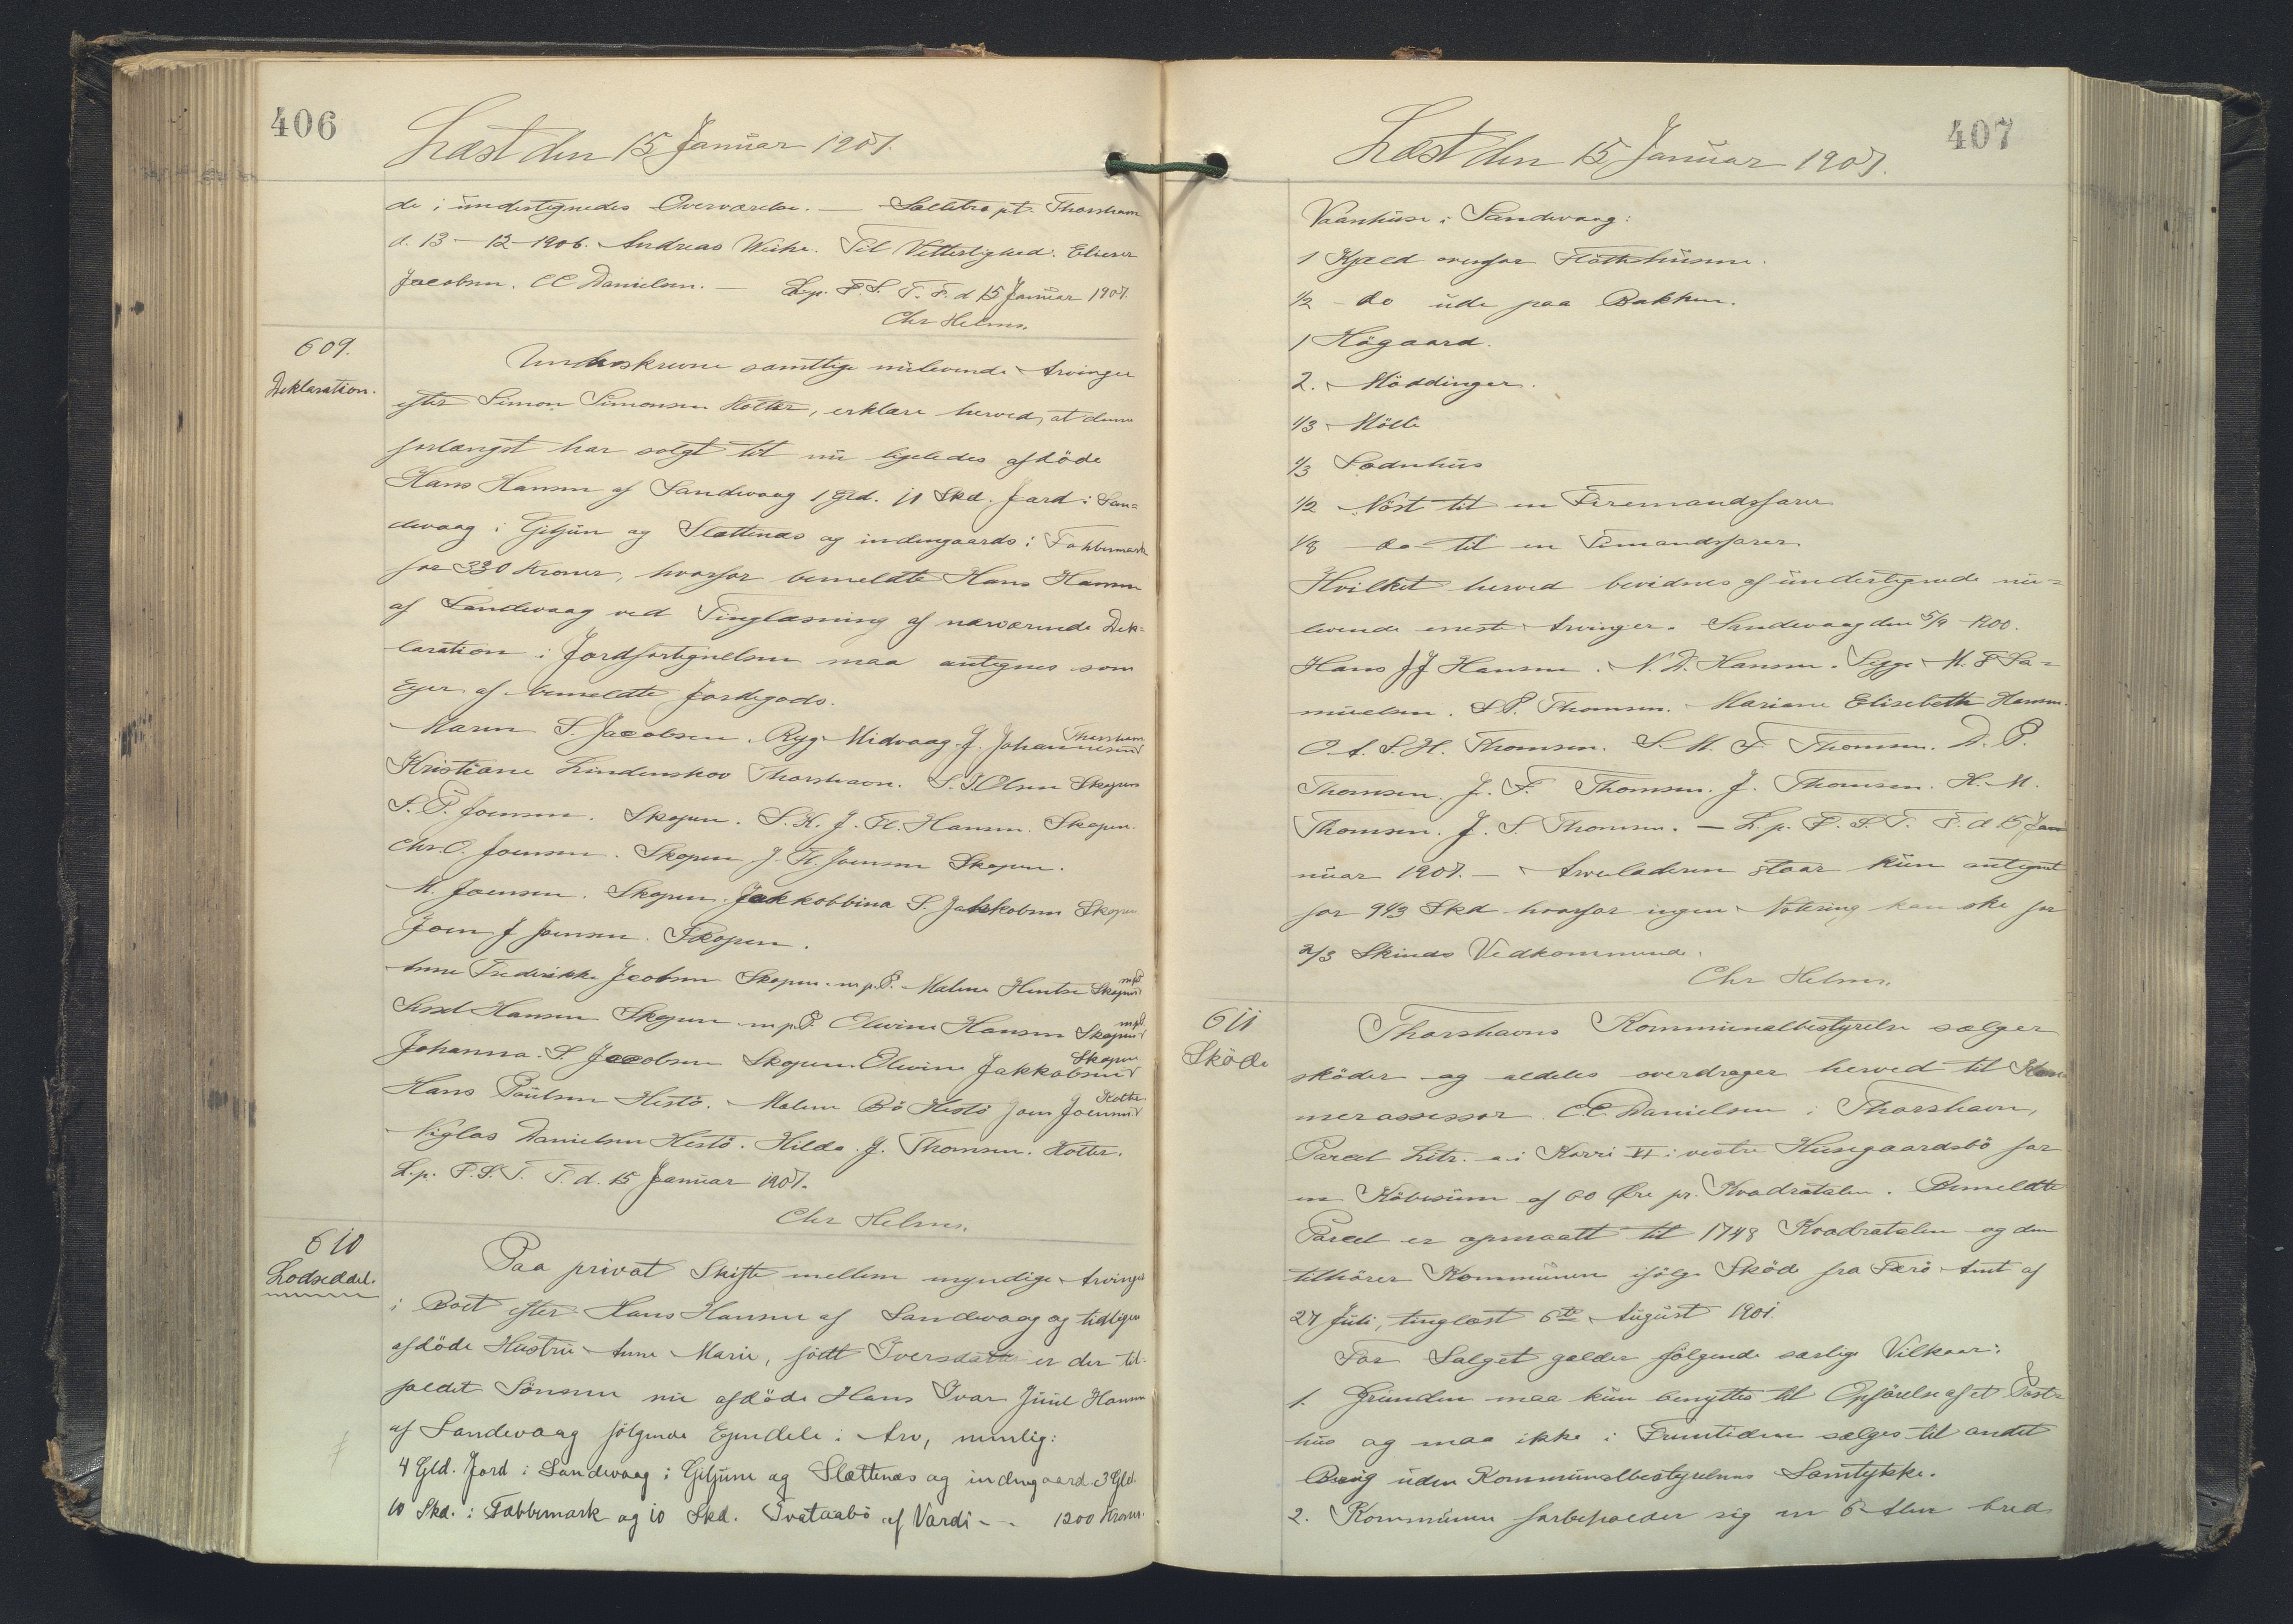 406
Læst den 15 Januar 1907.
de i undertegnedes Overværelse. — Saltetra pt. Thorshavn
d. 13 – 12 – 1906. Andreas Weihe. Til Vitterlighed: Elieser
Jacobsen. CC Danielsen. — L.p. F.S. T. F. d 15 Januar 1907.
Chr Helms.
609.
Deklaration.
Underskrevne samtlige nulevende Arvinger
efter Simon Simonsen Kolter, erklære herved, at denne
forlængst har solgt til nu ligeledes afdöde
Hans Hansen af Sandevaag 1 Gld. 11 Skd. Jord i San=
devaag i Giljun og Slættenæs og indengaards i Fabbemark
for 330 Kroner, hvorfor bemeldte Hans Hansen
af Sandevaag ved Tinglæsning af nærværende Dek=
laration i Jordfortegnelsen maa antegnes som
Ejer af bemeldte Jordegods.
Maren S. Jacobsen. Ryg. Midvaag. J. Johannesen Thorshavn
Kristiane Lindenskov Thorshavn. S. J. Olsen Skopun
S. P. Joensen. Skopun. S. K. J. El. Hansen. Skopun.
Chr. O. Joensen. Skopun J. H. Joensen Skopun.
M. Joensen. Skopun. Jakkobbina S. Jakkobsen Skopun
Joen J Joensen. Skopun.
Anne Frederikke Jcobsen Skopun. m.p.P. Malene Hentze Skopun m.p.P.
Sissel Hansen Skopun m.p.P. Elwine Hansen Skopun m.p.P.
Johanna. S. Jacobsen Skopun. Olevine Jakkobsen Skopun
Hans Poulsen Hestö. Malene Bö Hestö Joen Joensen Kolter
Niglas Danielsen Hestö. Hilda. J. Thomsen. Kolter.
L.p. F.S.T. F. d. 15 Januar 1907.
Chr Helms.
610
Lodseddel.
Paa privat Skifte mellem myndige Arvinger
i Boet efter Hans Hansen af Sandevaag og tidligere
afdöde Hustru Anne Marie, födt Iversdatter er der til=
faldet Sönnen nu afdöde Hans Ivar Juul Hansen
af Sandevaag fölgende Ejendele i Arv, nemlig:
4 Gld. Jord i Sandevaag i Giljune og Slættenæs og indengaard. 3 Gld.
10 Skd. i Fabbemark og 10 Skd. Tvataabö af Vardi – . 1200 Kroner.
407
Læst den 15 Januar 1907.
Vaanhuse i Sandevaag:
1 Kjæld ovenfor Flötthusene.
1/2 – do ude paa Bakken.
1 Högaard.
2. Möddinger.
1/3 Mölle
1/3 Sodnhus
1/2 Nöst til en Firemandsfarer
1/8 – do – til en Simandsfarer.
Hvilket herved bevidnes af undertegnede nu=
levende eneste Arvinger. Sandevaag den 5/9 – 1200.
Hans J J Hansen. N. D. Hansen. Sigge M. F Sa=
muelsen. S P. Thomsen. Mariane Elisebeth Hansen.
O. A. S. H. Thomsen. S. M. F Thomsen. D. P.
Thomsen. J. F. Thomsen. J. Thomsen. H. M.
Thomsen. J. S. Thomsen. — L. p. F. S. T. F. d. 15 Jan
nuar 1907. – Arveladeren staar kun antegnet
for 9 1/3 Skd hvorfor ingen Notering kan ske for
2/3 Skinds Vedkommende.
Chr Helms.
611
Sköde
Thorshavns Kommunalbestyrelse sælger
sköder og aldeles overdrager herved til Kam
merassessor C.C. Danielsen i Thorshavn,
Parcel Litr. a i Korri VI i vestre Husegaardsbö for
en Köbesum af 60 Øre pr. Kvadratalen. Bemeldte
Parcel er opmaalt til 1748 Kvadratalen og den
tilhörer Kommunen ifölge Sköd fra Færö Amt af
27 Juli, tinglæst 6te August 1901.
For Salget gælder fölgende særlige Vilkaar:
1. Grunden maa kun benyttes til Opförelse af et Post=
hus og maa ikke i Fremtiden sælges til andet
Brug uden Kommunalbestyrelsens Samtykke.
2. Kommunen forbeholder sig en 6 Alen bred